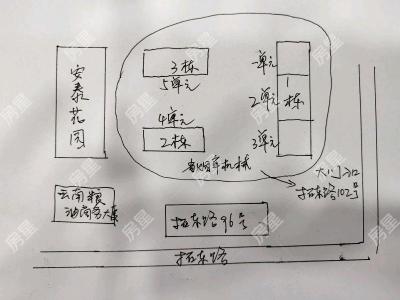 安泰花园
3栋
5单元
4单元
2栋
一单元
2单元
3单元
1栋
省烟草机械
大门入口
拓东路102号
云南粮
油商务大厦
拓东路96号
拓东路
房星